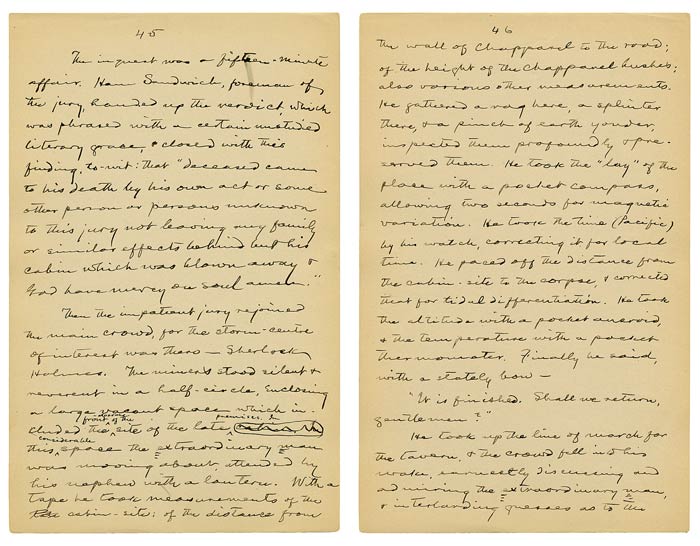 45
The inquest was a fifteen-minute
affair. Ham Sandwich, foreman of
the jury, handed up the verdict, which
was phrased with a certain unstudied
literary grace, & closed with this
finding, to-wit: that "deceased came
to his death by his own act or some
other person or persons unknown
to this jury not leaving any family
or similar effects behind but his
cabin which was blown away &
God have mercy on soul amen."
Then the impatient jury rejoined
the main crowd, for the storm-centre
of interest was there — Sherlock
Holmes. The miners stood silent &
reverent in a half-circle, enclosing
a large vacant space which in-
cluded the front exposure of the site of the late premises. In
this considerable space the extraordinary man
was moving about, attended by
his nephew with a lantern. With a
tape he took measurements of the
cabin-site; of the distance from
46
the wall of chapparel to the road;
of the height of the chapparel bushes;
also various other measurements.
He gathered a rag here, a splinter
there, & a pinch of earth yonder,
inspected them profoundly & pre-
served them. He took the "lay" of the
place with a pocket compass,
allowing two seconds for magnetic
variation. He took the time (Pacific)
by his watch, correcting it for local
time. He paced off the distance from
the cabin-site to the corpse, & corrected
that for tidal differentiation. He took
the altitude with a pocket aneroid,
& the temperature with a pocket
thermometer. Finally he said,
with a stately bow —
"It is finished. Shall we return,
gentlemen?"
He took up the line of march for
the tavern, & the crowd fell into his
wake, earnestly discussing and
admiring the extraordinary man,
& interlarding guesses as to the